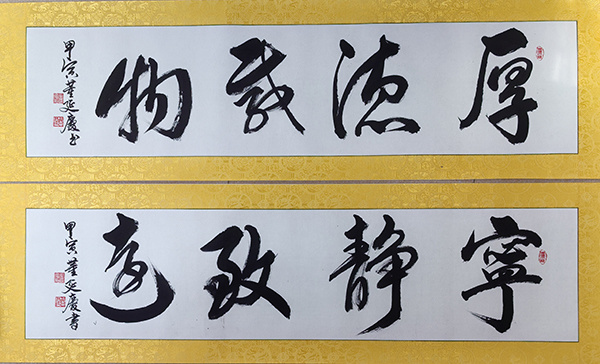 厚德載物
甲寅董延慶书
寧靜致遠
甲寅董延慶書